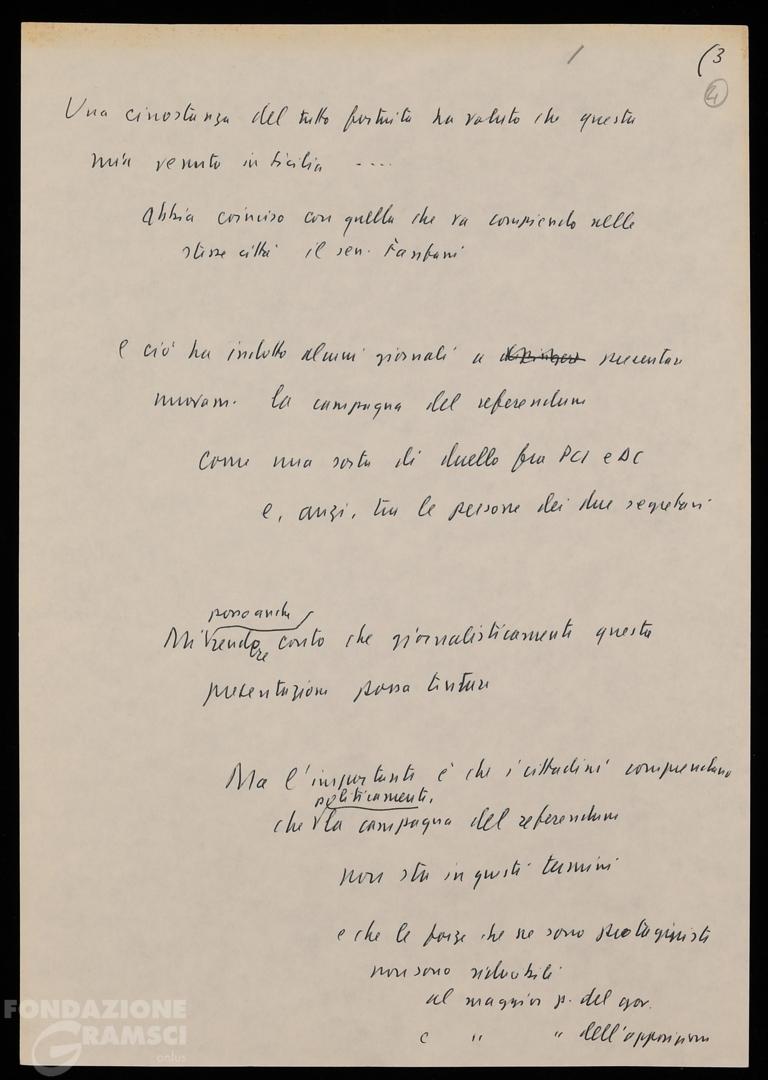 / (3
4
Una circostanza del tutto fortuita ha voluto che questa
mia venuta in Sicilia ....
abbia coinciso con quella che va compiendo nelle
stesse città il sen. Fanfani
e ciò ha indotto alcuni giornali a presentare
nuovam. la campagna del referendum
come una sorta di duello fra PCI e DC
e, anzi, tra le persone dei due segretari
posso anche
Mi rendere conto che giornalisticamente questa
presentazione possa tentare
Ma l'importante è che i cittadini comprendano
politicamente,
che la campagna del referendum
non sta in questi termini
e che le forze che ne sono protagoniste
non sono riducibili
al maggior p. del gov.
e " " dell'opposizione
FONDAZIONE
GRAMSCI
onlus